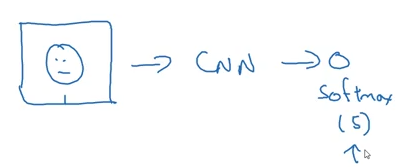 CNN
Softmax
(5)